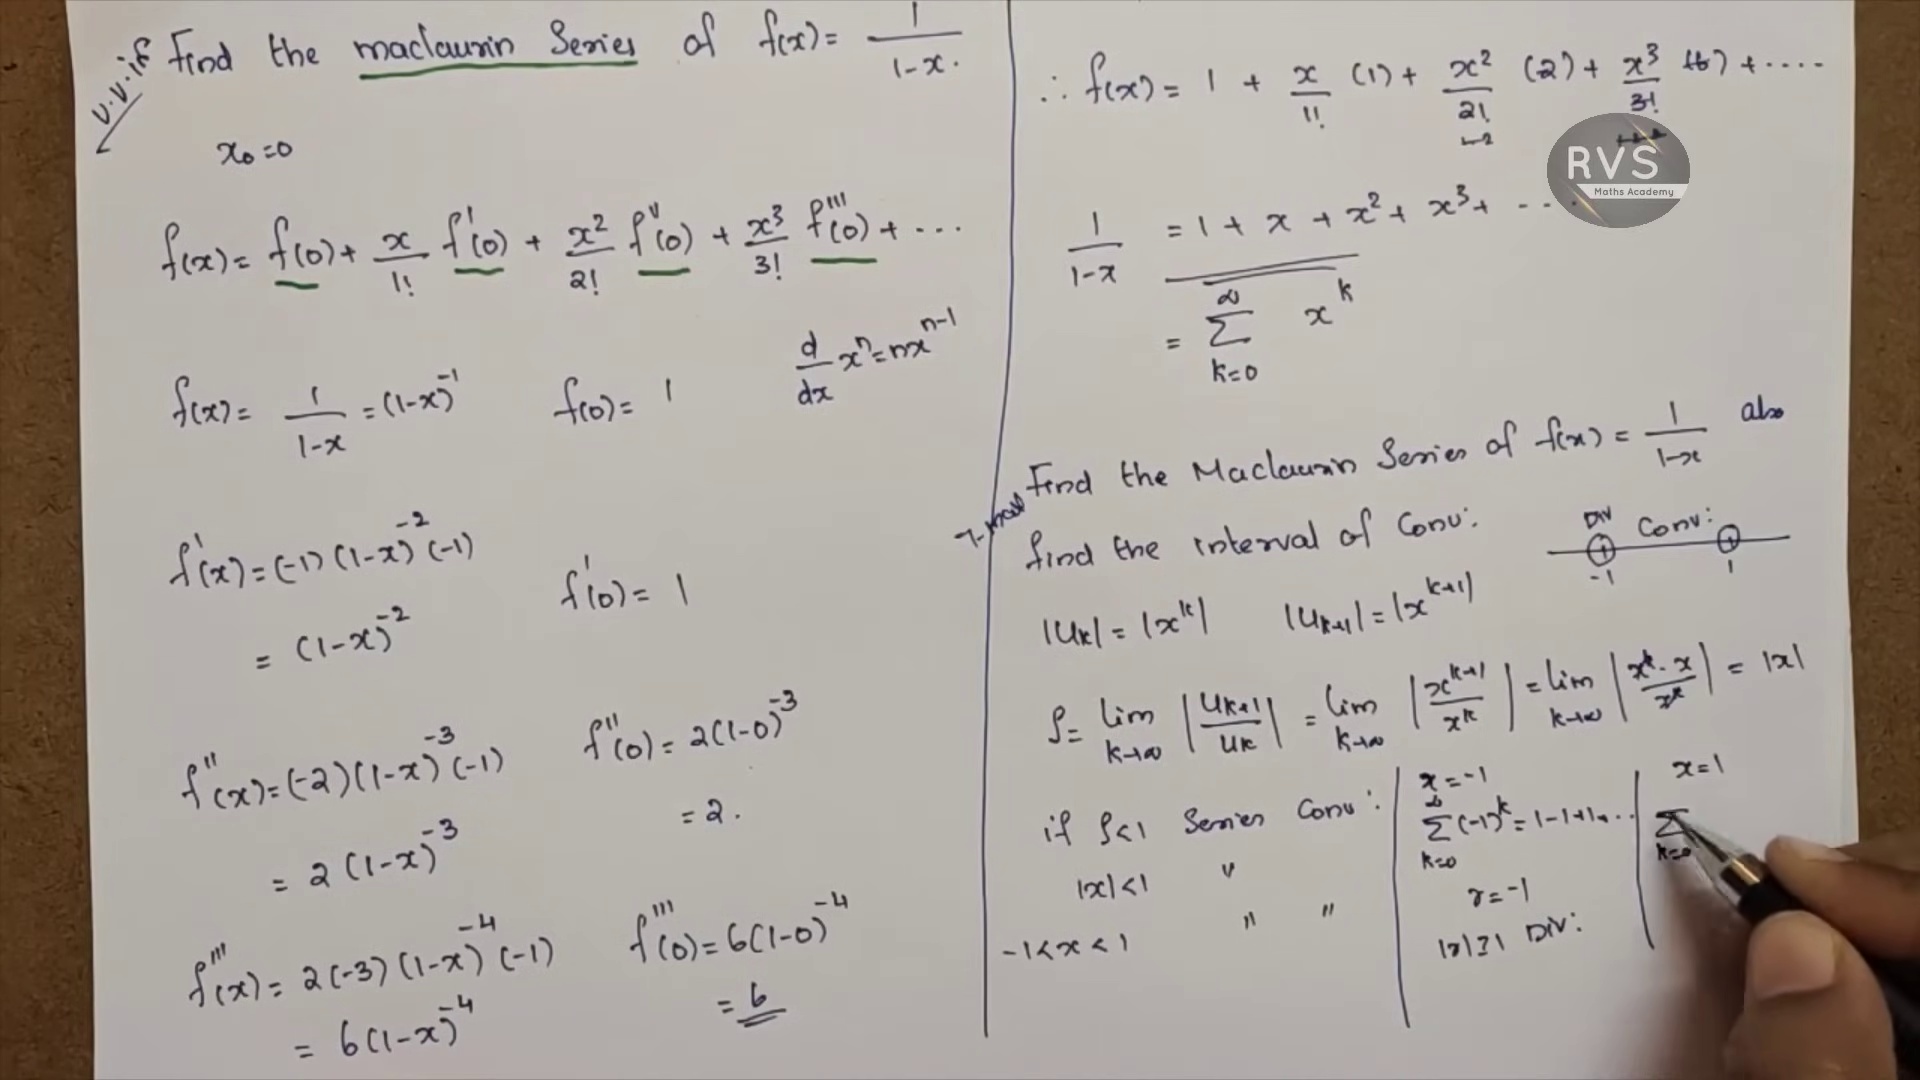 v.v.if
Find the maclaurin Series of f(x) = 1/(1-x).
x₀=0
f(x) = f(0) + x/1! f'(0) + x²/2! f''(0) + x³/3! f'''(0) + ...
d/dx xⁿ = nxⁿ⁻¹
f(x) = 1/(1-x) = (1-x)⁻¹ f(0) = 1
f'(x) = (-1)(1-x)⁻²(-1)
= (1-x)⁻² f'(0) = 1
f''(x) = (-2)(1-x)⁻³(-1) f''(0) = 2(1-0)⁻³
= 2(1-x)⁻³ = 2.
f'''(x) = 2(-3)(1-x)⁻⁴(-1) f'''(0) = 6(1-0)⁻⁴
= 6(1-x)⁻⁴ = 6
∴ f(x) = 1 + x/1! (1) + x²/2! (2) + x³/3! (6) + ....
RVS
Maths Academy
1/(1-x) = 1 + x + x² + x³ + ...
= ∞ Σ k=0 xᵏ
Find the Maclaurin Series of f(x) = 1/(1-x) also
find the interval of Conv:
Div Conv:
-1 1
|Uₖ| = |xᵏ| |Uₖ₊₁| = |xᵏ⁺¹|
ρ = lim k→∞ |Uₖ₊₁/Uₖ| = lim k→∞ |xᵏ⁺¹/xᵏ| = lim k→∞ |xᵏ·x/xᵏ| = |x|
if ρ<1 Series Conv:
|x|<1 "
-1<x<1 " "
x=-1
∞ Σ k=0 (-1)ᵏ = 1-1+1+...
r=-1
|r|≥1 Div:
x=1
Σ k=0